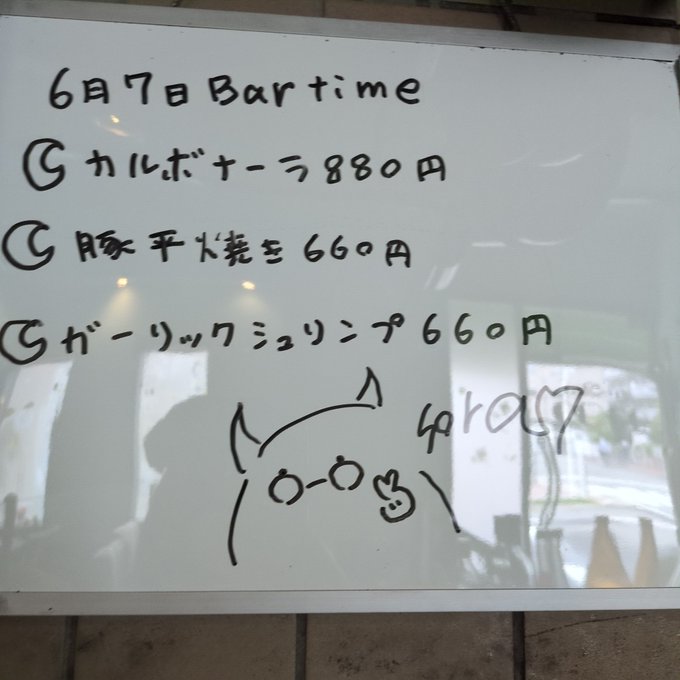 6月7日 Bar time
カルボナーラ 880円
豚平焼き 660円
ガーリックシュリンプ 660円